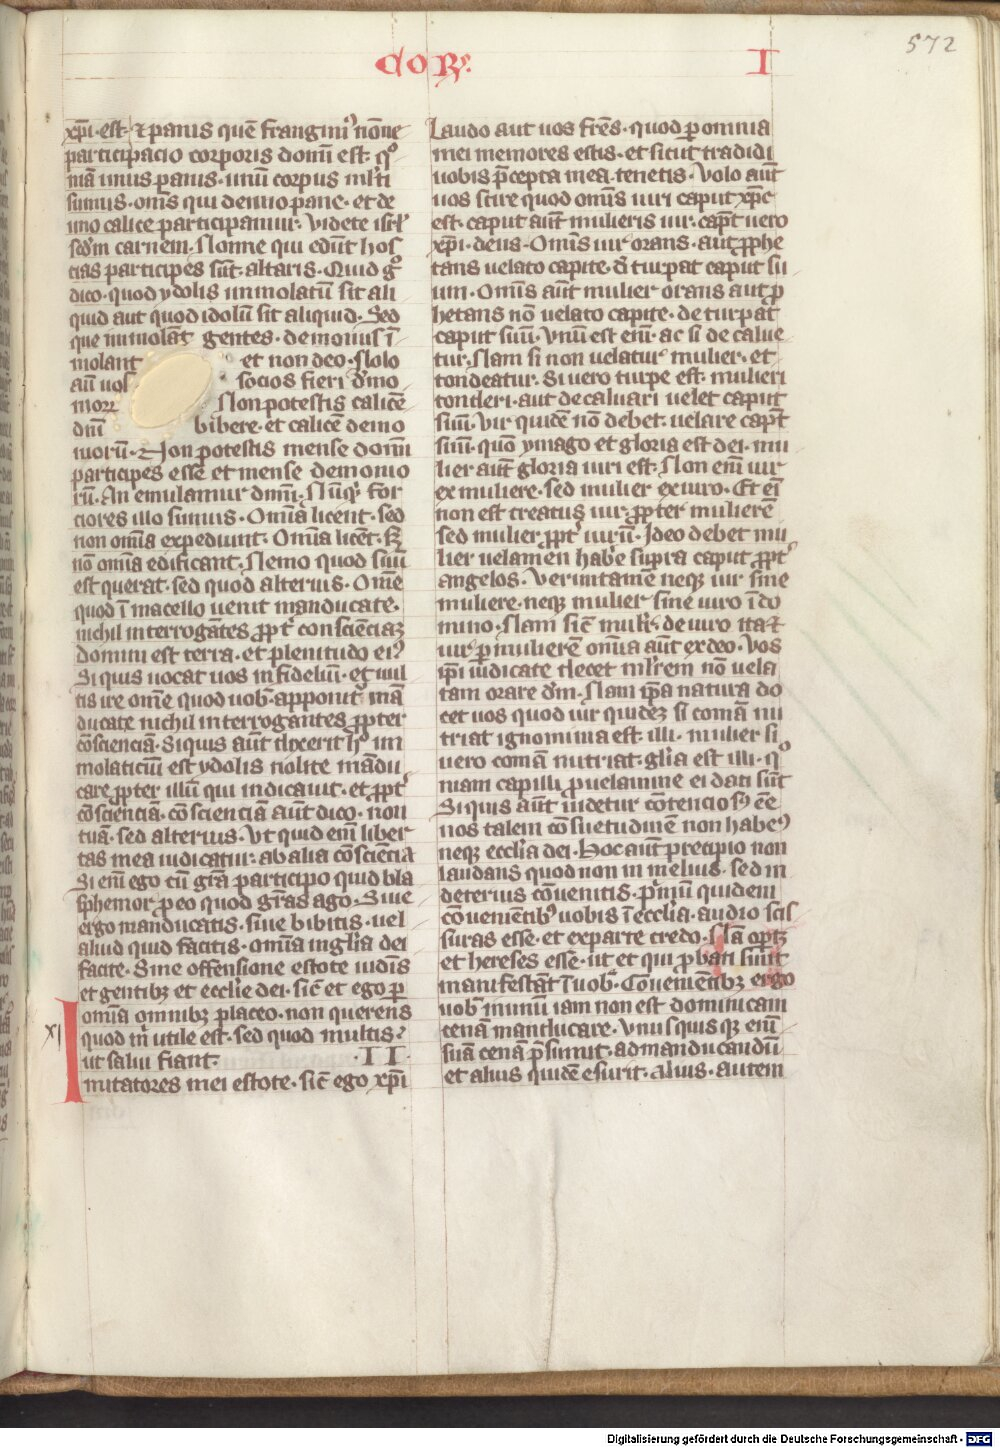 572
cor.
I
xp̄i·est· ⁊ panis quē frangim᷒ nōne
participacio corporis domī est· qͦ
niā unus panis·unū corpus ml̄ti
sumus·om̄s qui de uno pane·et de
uno calice participamur·Videte isrl̄
scd̄m carnem·Nonne qui edūt hos
tias participes sūt·altaris·Quid gͦ
dico·quod ydolis immolatū sit ali
quid aut quod idolū sit aliquid·Sed
que immolāt gentes·demoniis ī
molant et non deo·Nolo
aū uos socios fieri d̓mo
nior̄ Non potestis calicē
dn̄i bibere·et calicē demo
niorū·Non potestis mense domī
participes esse et mense demonio
rū·An emulamur dn̄m·Nūqͥ for
ciores illo sumus·Omīa licent·sed
non om̄ia expediunt·Om̄ia licēt·sꝫ
nō om̄ia edificant·Nemo quod suū
est querat·sed quod alterius·Om̄e
quod ī macello uenit manducate·
nichil interrogātes ꝓpt̓ consciēciaꝫ
domini est terra·et plenitudo ei᷒
Si quis uocat uos infideliū·et uul
tis ire om̄e quod uob̓·apponit᷒ mā
ducate nichil interrogantes ꝓpter
cōsciēciā·Si quis aūt dixerit hͦ im
molaticiū est ydolis nolite mādu
care ꝓpter illū qui indicauit·et ꝓpt̓
cōsciēciā·cōsciēciā aūt dico·non
tuā·sed alterius·Vt quid em̄ liber
tas mea iudicatur·ab alia cōsciēcia
Si em̄ ego cū gr̄a participo quid bla
sphemor pro eo quod gr̄as ago·Siue
ergo manducatis·siue bibitis·uel
aliud quid facitis·om̄ia in gl̄ia dei
facite·Sine offensione estote iudēis
et gentibꝫ et ecclīe dei·sic̄ et ego ꝑ
om̄ia omnibꝫ placeo·non querens
quod m̄ utile est·sed quod multis
ut salui fiant· ·II·
xj
Imitatores mei estote·sic̄ ego xp̄i
Laudo aut uos fr̄es·quod ꝑ omnia
mei memores estis·et sicut tradidi
uobis p̄cepta mea tenetis·Volo aūt
uos scire quod omīs uiri caput xp̄c
est·caput aūt mulieris uir·capt̄ uero
xp̄i·deus·Omīs uir orans·aut ꝓphe
tans uelato capite·d̓turpat caput su
um·Omīs aūt mulier orans aut ꝓ
hetans nō uelato capite·deturpat
caput suū·Vnū est em̄·ac si decalue
tur·Nam si non uelatur mulier·et
tondeatur·Si uero turpe est·mulieri
tonderi·aut decaluari uelet caput
suū·Vir quidē nō debet·uelare capt̄
suū·quō ymago et gloria est dei·mu
lier aūt gloria uiri est·Non em̄ uir
ex muliere·sed mulier ex uiro·Et em̄
non est creatus uir·ꝓpter mulierē
sed mulier ꝓpt̓ uirū·Ideo debet mu
lier uelamen hab̓e supra caput ꝓpt̓
angelos·Veruntamē neqꝫ uir sine
muliere·neqꝫ mulier sine uiro ī do
mino·Nam sic̄ muli̓s de uiro ita ⁊
uir ꝑ mulierē om̄ia aut ex deo·Vos
ip̄i iudicate decet ml̓rem nō uela
tam orare d̓m·Nam ip̄a natura do
cet uos quod uir quideꝫ si comā nu
triat ignominia est·illi·mulier si
uero comā nutriat·gl̄ia est illi·qͦ
niam capilli pro uelamine ei dati sūt
Si quis aūt uidetur cōtencios᷒ eē
nos talem cōsuetudinē non habem᷒
neqꝫ eccl̄ia dei·Hoc aūt precipio non
laudans quod non in melius·sed in
deterius cōuenitis·pͥmū quidem
cōuenientib᷒ uobis ī eccl̄ia·audio scis
suras esse·et ex parte credo·Nā opꝫ
et hereses esse·ut et qui probati sunt
manifestāt̓ ī uob̓·Conuenientibꝫ ergo
uob̓ in unū iam non est dominicam
cenā manducare·Vnusquisqꝫ em̄
suā cenā p̄sumit·ad manducandū
et alius quidē esurit·alius·autem
Digitalisierung gefördert durch die Deutsche Forschungsgemeinschaft - DFG